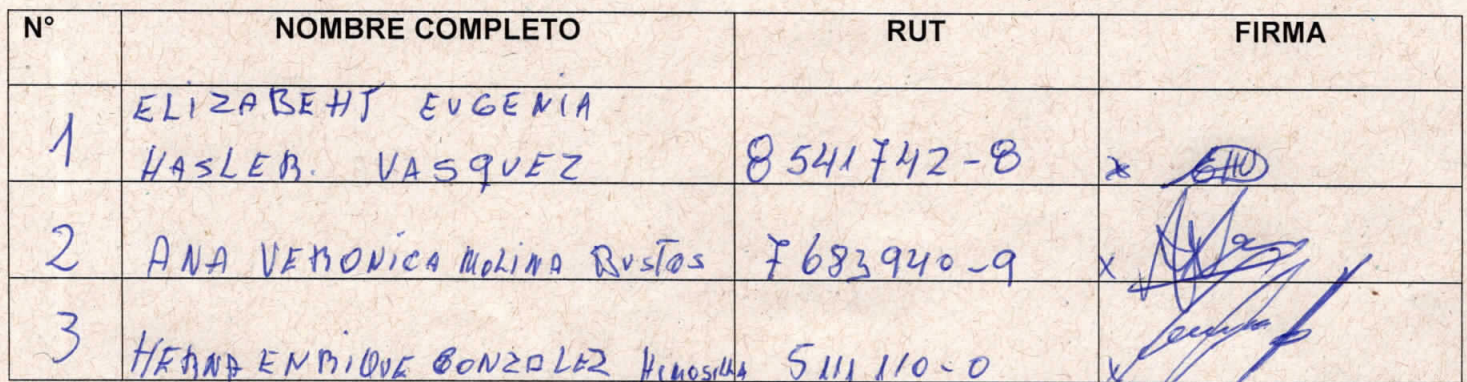 N° NOMBRE COMPLETO RUT FIRMA
ELIZABEHT EUGENIA
1 HASLER. VASQUEZ 8541742-8 x EHV
2 ANA VERONICA MOLINA BUSTOS 7683940-9 x
3 HERNA ENRIQUE GONZALEZ 5111110-0 x